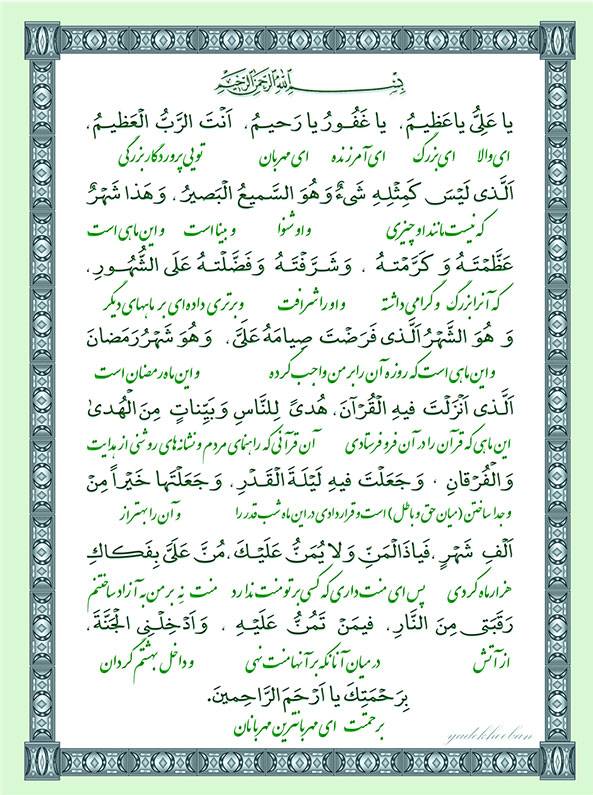 بِسْمِ اللهِ الرَّحْمنِ الرَّحيمِ
يا عَلِيُّ يا عَظيمُ، يا غَفُورُ يا رَحيمُ، اَنْتَ الرَّبُّ الْعَظيمُ،
ای والا ای بزرگ ای آمرزنده ای مهربان تویی پروردگار بزرگی
اَلَّذى لَيْسَ كَمِثْلِهِ شَىءٌ وَ هُوَ السَّميعُ الْبَصيرُ، وَ هَذا شَهْرٌ
که نیست مانند او چیزی و او شنوا و بینا است و این ماهی است
عَظَّمْتَهُ وَ كَرَّمْتهُ ، وَ شَرَّفْتَهُ وَ فَضَّلْتهُ عَلَى الشُّهُورِ،
که آنرا بزرگ و گرامی داشته و او را شرافت و برتری داده ای بر ماههای دیگر
وَ هُوَ الشَّهْرُ الَّذى فَرَضْتَ صِيامَهُ عَلَىَّ، وَ هُوَ شَهْرُ رَمَضانَ
و این ماهی است که روزه آن را بر من واجب کرده و این ماه رمضان است
اَلَّذى اَنْزَلْتَ فيهِ الْقُرْآنَ، هُدىً لِلنَّاسِ وَ بَيِّناتٍ مِنَ الْهُدىٰ
این ماهی که قرآن را در آن فرو فرستادی آن قرآنی که راهنمای مردم و نشانه های روشنی از هدایت
وَ الْفُرْقانِ ، وَ جَعَلْتَ فيهِ لَيْلَةَ الْقَدْرِ، وَ جَعَلْتَها خَيْراً مِنْ
و جدا ساختن (میان حق و باطل) است و قرار دادی در این ماه شب قدر را و آن را بهتر از
اَلْفِ شَهْرٍ، فَياذَالْمَنِّ وَ لا يُمَنُّ عَلَيْكَ، مُنَّ عَلَىَّ بِفَكاكِ
هزار ماه کردی پس ای منت داری که کسی بر تو منت ندارد منت نِه بر من به آزاد ساختنم
رَقَبَتى مِنَ النَّارِ، فيمَنْ تَمُنُّ عَلَيْهِ ، وَ اَدْخِلْنِى الْجَنَّةَ،
از آتش در میان آنانکه بر آنها منت نهی و داخل بهشتم گردان
بِرَحْمَتِكَ يا اَرْحَمَ الرَّاحِمينَ.
برحمتت ای مهربانترین مهربانان
yadekhooban